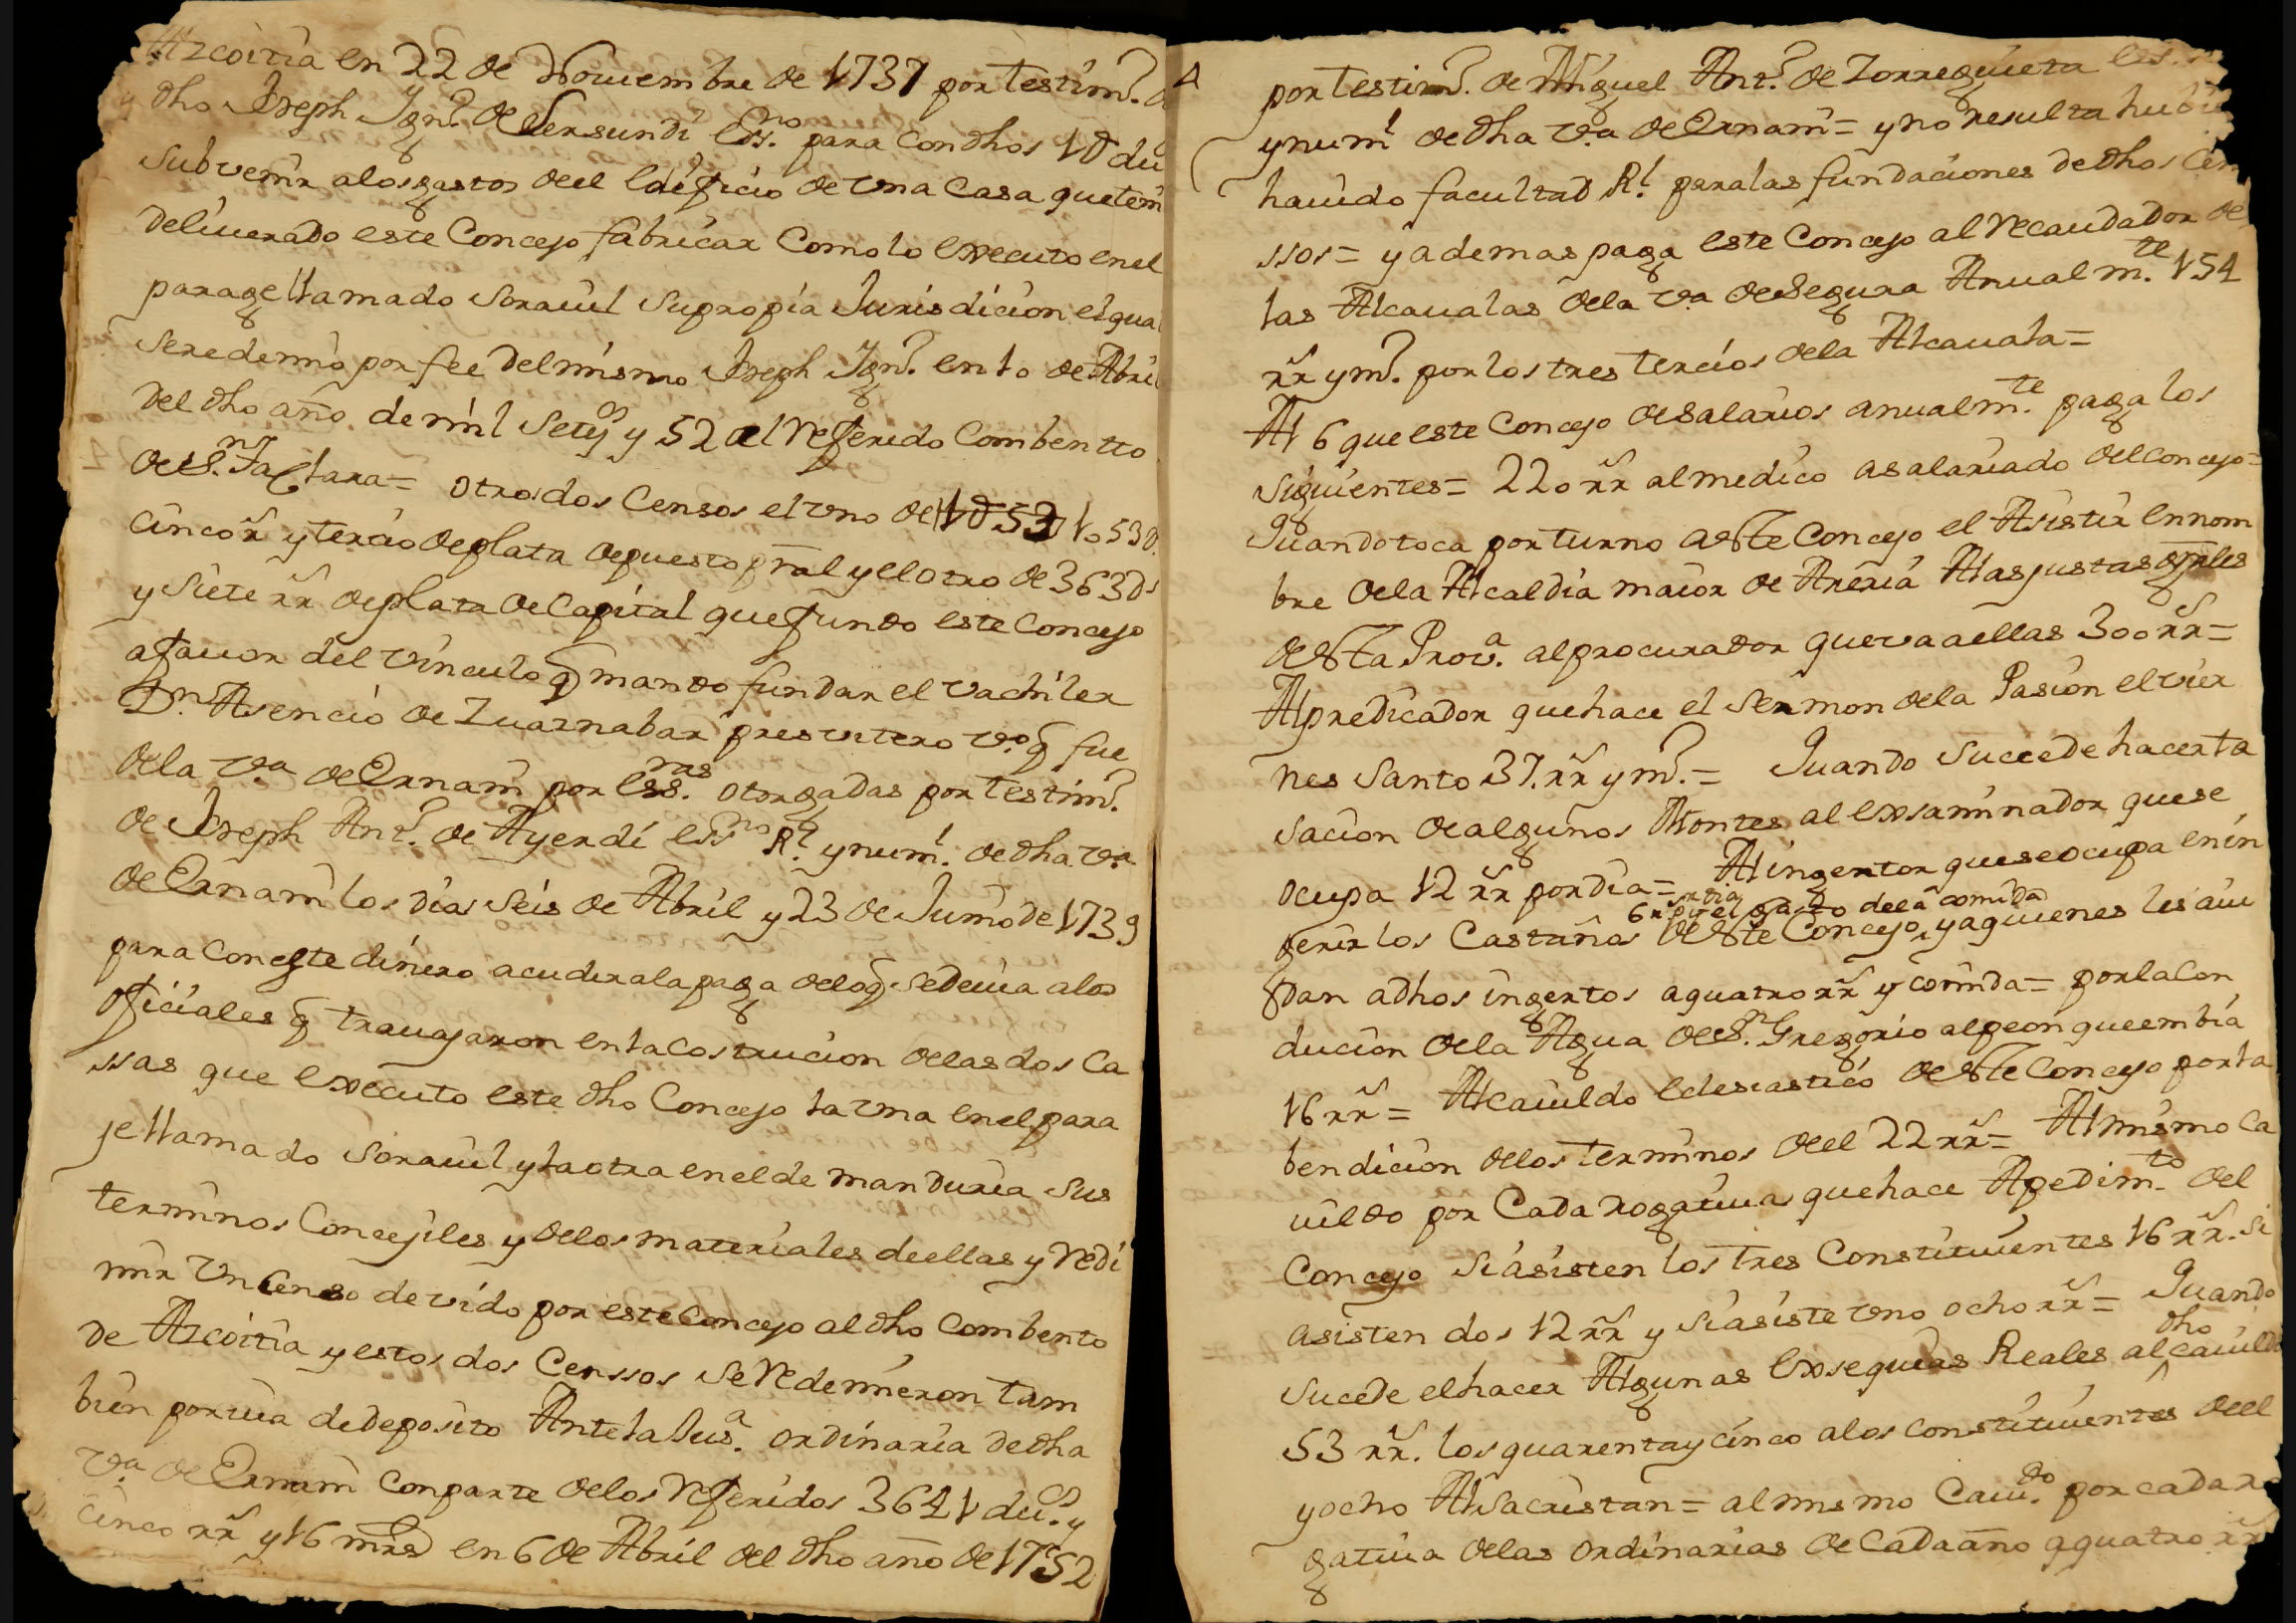 Azcoitia en 22 de Nouiembre de 1737 por testimº.
y dho Joseph Ignº. de Sersundi Essno. para con dhos 1D du
subvenir alos gastos deel edificio de vna Casa que tem
deliuerado este Concejo fabricar Como lo executo en el
parage llamado Sorauil su propia Jurisdicion el qual
se redemio por fee del mismo Joseph Ignº. en 10 de Abril
del dho año de mil setesº y 52 al Referido Combentto
de Sta Clara = otros dos Censos el vno de 1053D.
cinco rr y tercio de plata de puesto prãl y el otro de 363Ds
y siete rr de plata de Capital que fundo este Concejo
afauor del vinculo q̃ mando fundar el vachiler
Dn. Asencio de Zuaznabar presvitero vº. q̃ fue
dela va de Ernani por Essras. otorgadas por testimº.
de Joseph Antº. de Ayerdi essno Rl. y numl. de dha va
de Ernani los dias seis de Abril y 23 de Junio de 1739
para con este dinero acudir ala paga delo q̃ se deuia alos
oficiales q̃ trauajaron en la Costrucion delas dos Ca
ssas que executo este dho Concejo la vna en el para
je llamado Sorauil y la otra en el de manduria sus
terminos Concejiles y delos materiales de ellas y Redi
mir vn Censo devido por este Concejo al dho Combento
de Azcoitia y estos dos Censsos se Redemieron tam
bien por via de deposito Ante la Jusª. ordinaria de dha
va de Ernani con parte delos Referidos 3641 dus. y
cinco rr y 16 mrs en 6 de Abril del dho año de 1752
por testimº. de Miguel Antº. de Zorreguieta
y numl de dha va. de Ernani = y no resulta hubie
hauido facultad Rl. para las fundaciones de dhos Cen
ssos = y ademas paga este Concejo al Recaudador de
las Alcaualas dela va de Segura Anualmte. 154
rr y mº. por los tres tercios dela Alcauala =
Al 6 que este Concejo de salarios anualmte. paga los
siguientes = 220 rr al medico asalariado del concejo =
Quando toca por turno a este Concejo el Asistir en nom
bre dela Alcaldia maior de Areria Alas juntas gr̃ales
de esta Provª. al procurador que va a ellas 300 rr =
Al predicador que hace el sermon dela Pasion el vier
nes santo 37. rr y mº. = Quando succede hacer ta
sacion de algunos Montes al exsaminador que se
ocupa 12 rr por dia = Al ingertor que se ocupa en in
6 rr por el gasto de la comida
gerir los Castaños de este Concejo, y a quienes les aiu
dan adhos ingertos a quatro rr y comida = por la Con
ducion dela Agua de Sn. Gregorio al peon que embia
16 rr = Al Cauildo Eclesiastico de este Concejo por la
bendicion delos terminos deel 22 rr = Al mismo Ca
uildo por Cada rogatiua que hace Apedimto. del
Concejo si asisten los tres Constituientes 16 rr. si
asisten dos 12 rr y si asiste vno ocho rr = Quando
dho
sucede el hacer Algunas Exsequias Reales al cauildo
53 rr. los quarenta y cinco alos constituientes deel
y ocho Al Sacristan = al mismo Cauido. por cada ro
gatiua delas ordinarias de Cada año a quatro rr